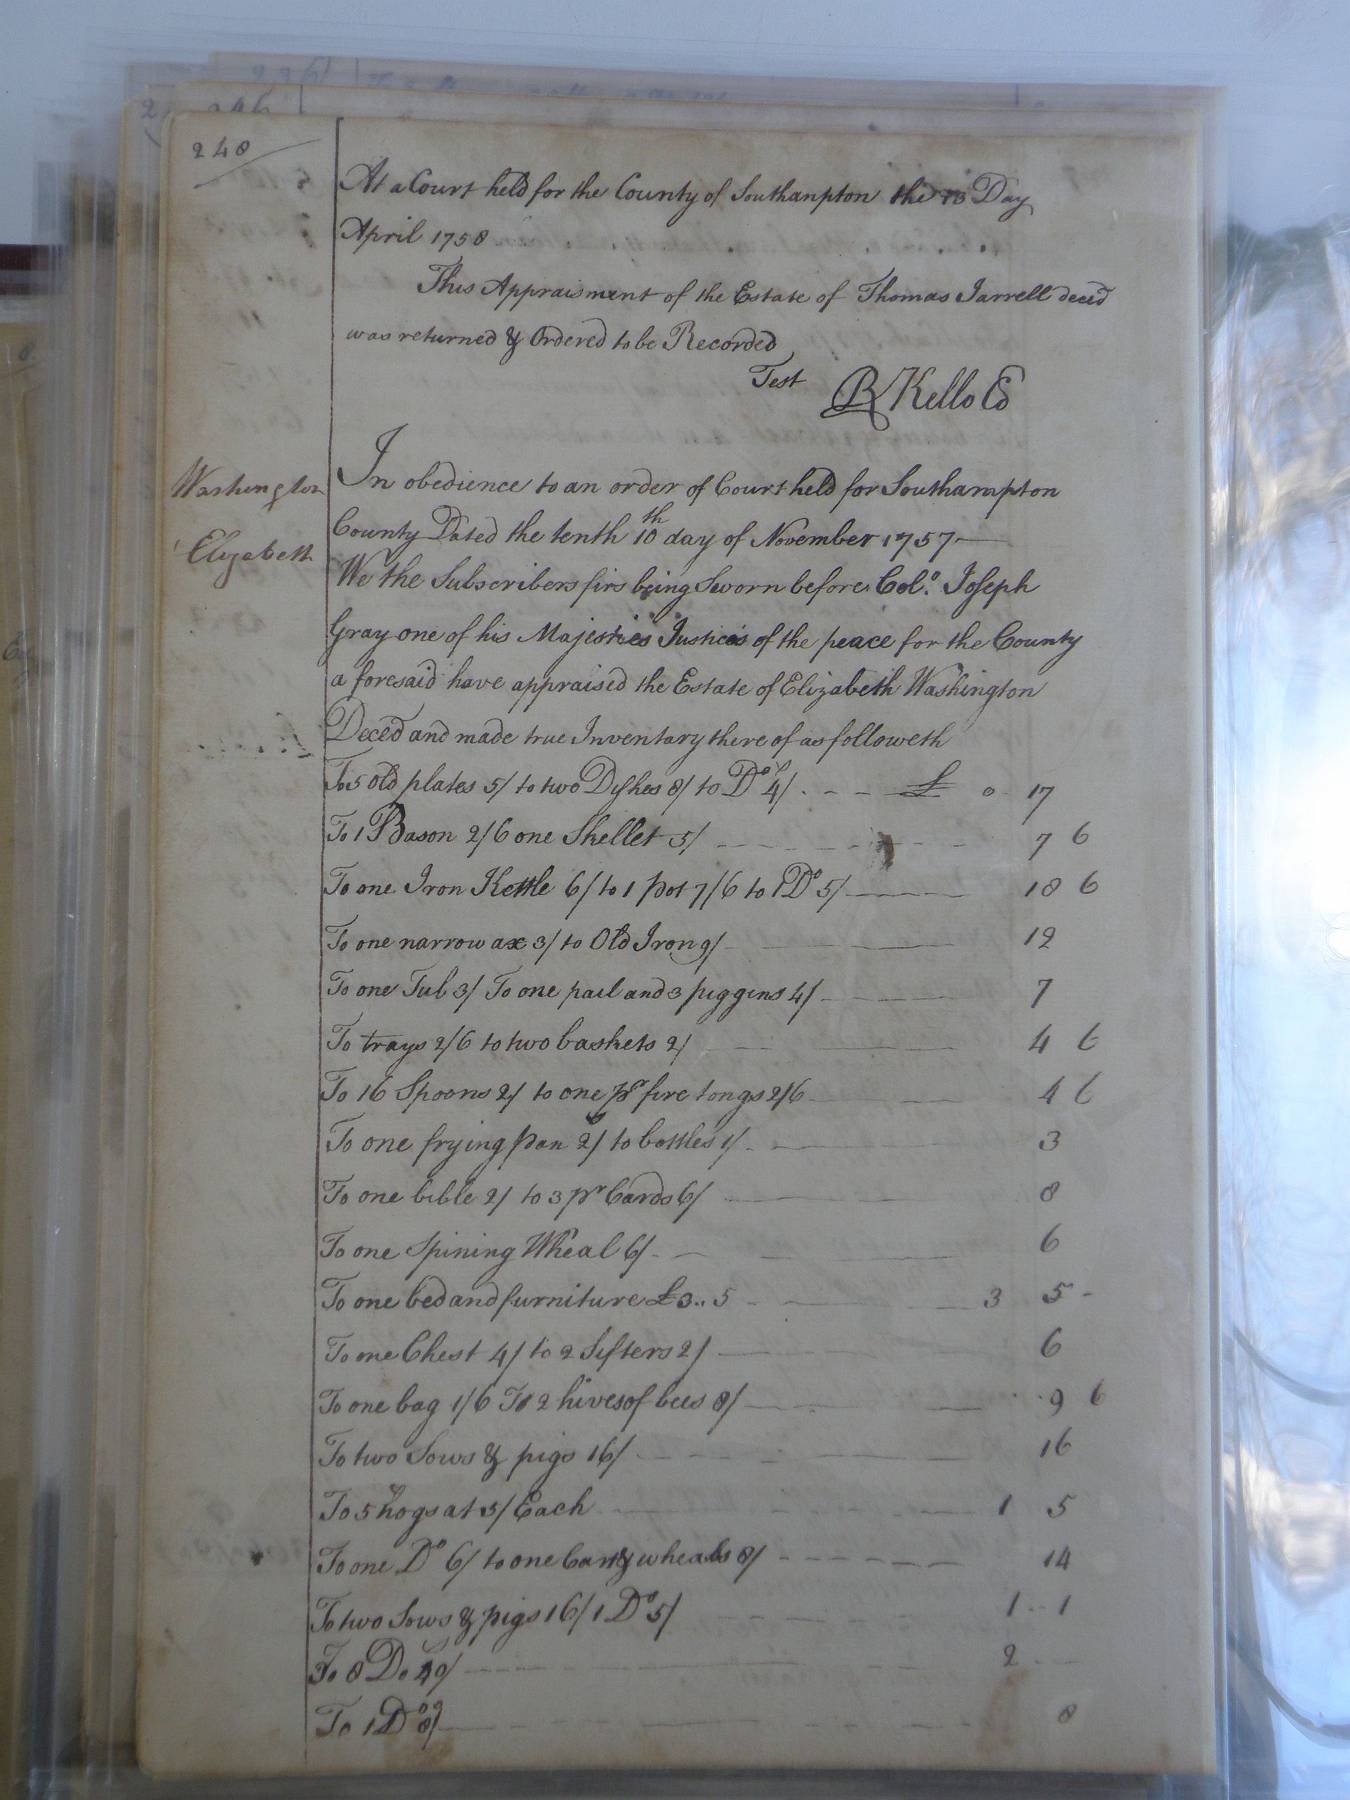 248
At a Court held for the County of Southanpton the 13 Day
April 1758
This Appraisment of the Estate of Thomas Jarrell decd
was returned & Ordered to be Recorded
Test R Kello
Washington
Elizabeth
In obedience to an order of Court held for Southampton
County Dated the tenth 10th day of November 1757
We the Subscribers firs being Sworn before Colo. Joseph
Gray one of his Majesties Justices of the peace for the County
a foresaid have appraised the Estate of Elizabeth Washington
Deced and made true Inventary there of as followeth
To 5 old plates 5/ to two Dyshes 8/ to Do 4/ £ 0 17
To 1 Bason 2/6 one Skellet 5/ 7 6
To one Iron Kettle 6/ to 1 pot 7/6 to 1 Do 5/ 18 6
To one narrow ax 3/ to Old Iron 9/ 12
To one Tub 3/ To one pail and 3 piggins 4/ 7
To trays 2/6 to two baskets 2/ 4 6
To 16 Spoons 2/ to one pr fire tongs 2/6 4 6
To one frying pan 2/ to bottles 1/ 3
To one bible 2/ to 3 pr Cards 6/ 8
To one Spining Wheal 6/ 6
To one bed and furniture £3..5 3 5 -
To one Chest 4/ to 2 Sifters 2/ 6
To one bag 1/6 To 2 hives of bees 8/ 9 6
To two Sows & pigs 16/ 16
To 5 hogs at 5/ Each 1 5
To one Do 6/ to one wheals 8/ 14
To two Sows & pigs 16/ 1 Do 5/ 1 .. 1
To 8 Do 2
To 1 Do 8/ 8